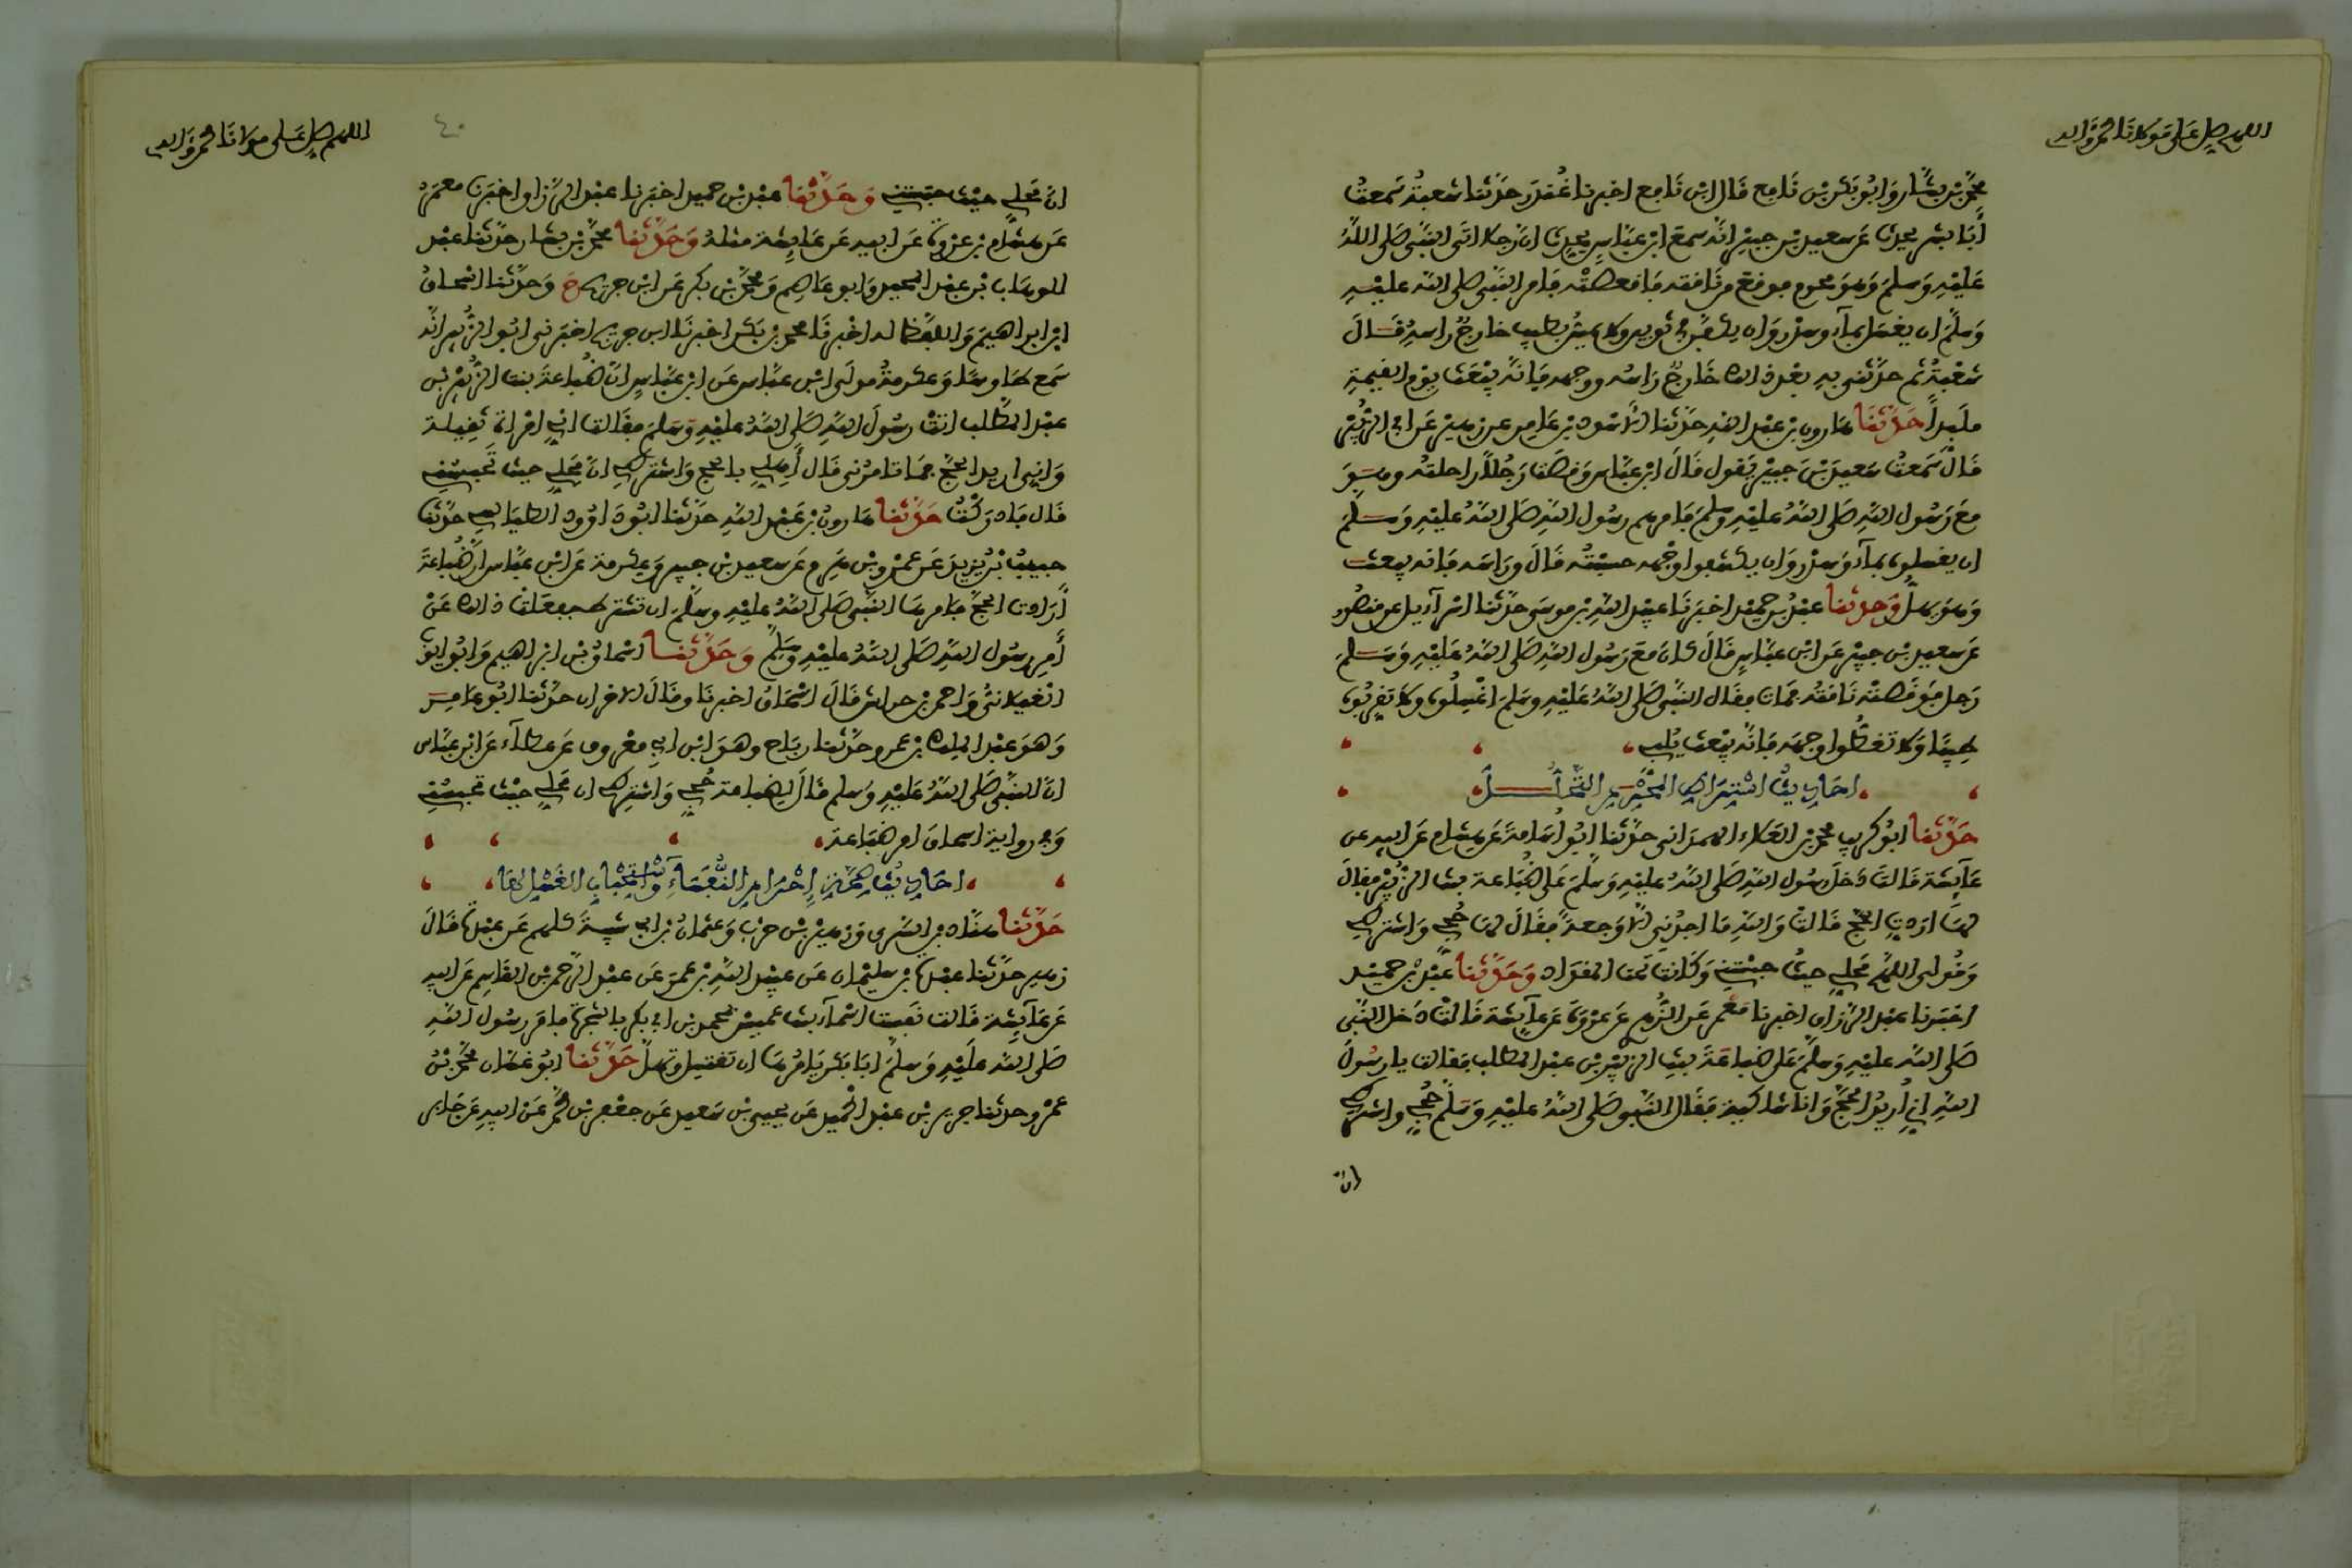 اللهم صل على مولانا محمد وآله
محمد بن بشار وأبو بكر بن نافع قال ابن نافع أخبرنا غندر حدثنا شعبة سمعت
أبا بشر يحدث عن سعيد بن جبير أنه سمع ابن عباس يحدث أن رجلا أتى النبي صلى الله
عليه وسلم وهو محرم فوقع من ناقته فأقعصته فأمر النبي صلى الله عليه
وسلم أن يغسل بماء وسدر وأن يكفن في ثوبين ولا يمس بطيب خارج رأسه قال
شعبة ثم حدثني به بعد ذلك خارج رأسه ووجهه فإنه يبعث يوم القيمة
ملبدا حدثنا هارون بن عبد الله حدثنا الأسود بن عامر عن زهير عن أبي الزبير
قال سمعت سعيد بن جبير يقول قال ابن عباس وقصت رجلا راحلته وهو
مع رسول الله صلى الله عليه وسلم فأمرهم رسول الله صلى الله عليه وسلم
أن يغسلوه بماء وسدر وأن يكشفوا وجهه حسبته قال ورأسه فإنه يبعث
وهو يهل وحدثنا عبد بن حميد أخبرنا عبيد الله بن موسى حدثنا إسرآءيل عن منصور
عن سعيد بن جبير عن ابن عباس قال كان مع رسول الله صلى الله عليه وسلم
رجل فوقصته ناقته فمات فقال النبي صلى الله عليه وسلم اغسلوه ولا تقربوه
طيبا ولا تغطوا وجهه فإنه يبعث يلب
أحاديث اشتراط المحرم التحلل
حدثنا أبو كريب محمد بن العلاء الهمداني حدثنا أبو أسامة عن هشام عن أبيه عن
عآئشة قالت دخل رسول الله صلى الله عليه وسلم على ضباعة بنت الزبير فقال
لها أردت الحج قالت والله ما أجدني إلا وجعة فقال لها حجي واشترطي
وقولي اللهم محلي حيث حبستني وكانت تحت المقداد وحدثنا عبد بن حميد
أخبرنا عبد الرزاق أخبرنا معمر عن الزهري عن عروة عن عآئشة قالت دخل النبي
صلى الله عليه وسلم على ضباعة بنت الزبير بن عبد المطلب فقالت يا رسول
الله إني أريد الحج وأنا شاكية فقال النبي صلى الله عليه وسلم حجي واشترطي
أن
اللهم صل على مولانا محمد وآله
٤٠
أن محلي حيث حبستني وحدثنا عبد بن حميد أخبرنا عبد الرزاق أخبرنا معمر
عن هشام بن عروة عن أبيه عن عآئشة مثله وحدثنا محمد بن بشار حدثنا عبد
الوهاب بن عبد المجيد وأبو عاصم ومحمد بن بكر عن ابن جريج ح وحدثنا إسحاق
ابن إبراهيم واللفظ له أخبرنا محمد بن بكر أخبرنا ابن جريج أخبرني أبو الزبير أنه
سمع طاوسا وعكرمة مولى ابن عباس عن ابن عباس أن ضباعة بنت الزبير بن
عبد المطلب أتت رسول الله صلى الله عليه وسلم فقالت إني امرأة ثقيلة
وإني أريد الحج فما تأمرني قال أهلي بالحج واشترطي أن محلي حيث تحبسني
قال فأدركت حدثنا هارون بن عبد الله حدثنا أبو داوود الطيالسي حدثنا
حبيب بن يزيد عن عمرو بن هرم عن سعيد بن جبير وعكرمة عن ابن عباس أن ضباعة
أرادت الحج فأمرها النبي صلى الله عليه وسلم أن تشترط ففعلت ذلك عن
أمر رسول الله صلى الله عليه وسلم وحدثنا إسحاق بن إبراهيم وأبو أيوب
الغيلاني وأحمد بن خراش قال إسحاق أخبرنا وقال الآخران حدثنا أبو عامر
وهو عبد الملك بن عمرو حدثنا رباح وهو ابن أبي معروف عن عطآء عن ابن عباس
أن النبي صلى الله عليه وسلم قال لضباعة حجي واشترطي أن محلي حيث تحبسني
وفي رواية إسحاق أمر ضباعة
أحاديث صحة إحرام النفسآء واستحباب الغسل لها
حدثنا هناد بن السري وزهير بن حرب وعثمان بن أبي شيبة كلهم عن عبدة قال
زهير حدثنا عبدة بن سليمان عن عبيد الله بن عمر عن عبد الرحمن بن القاسم عن أبيه
عن عآئشة قالت نفست أسمآء بنت عميس بمحمد بن أبي بكر بالشجرة فأمر رسول الله
صلى الله عليه وسلم أبا بكر يأمرها أن تغتسل وتهل حدثنا أبو غسان محمد بن
عمرو حدثنا جرير بن عبد الحميد عن يحيى بن سعيد عن جعفر بن محمد عن أبيه عن جابر